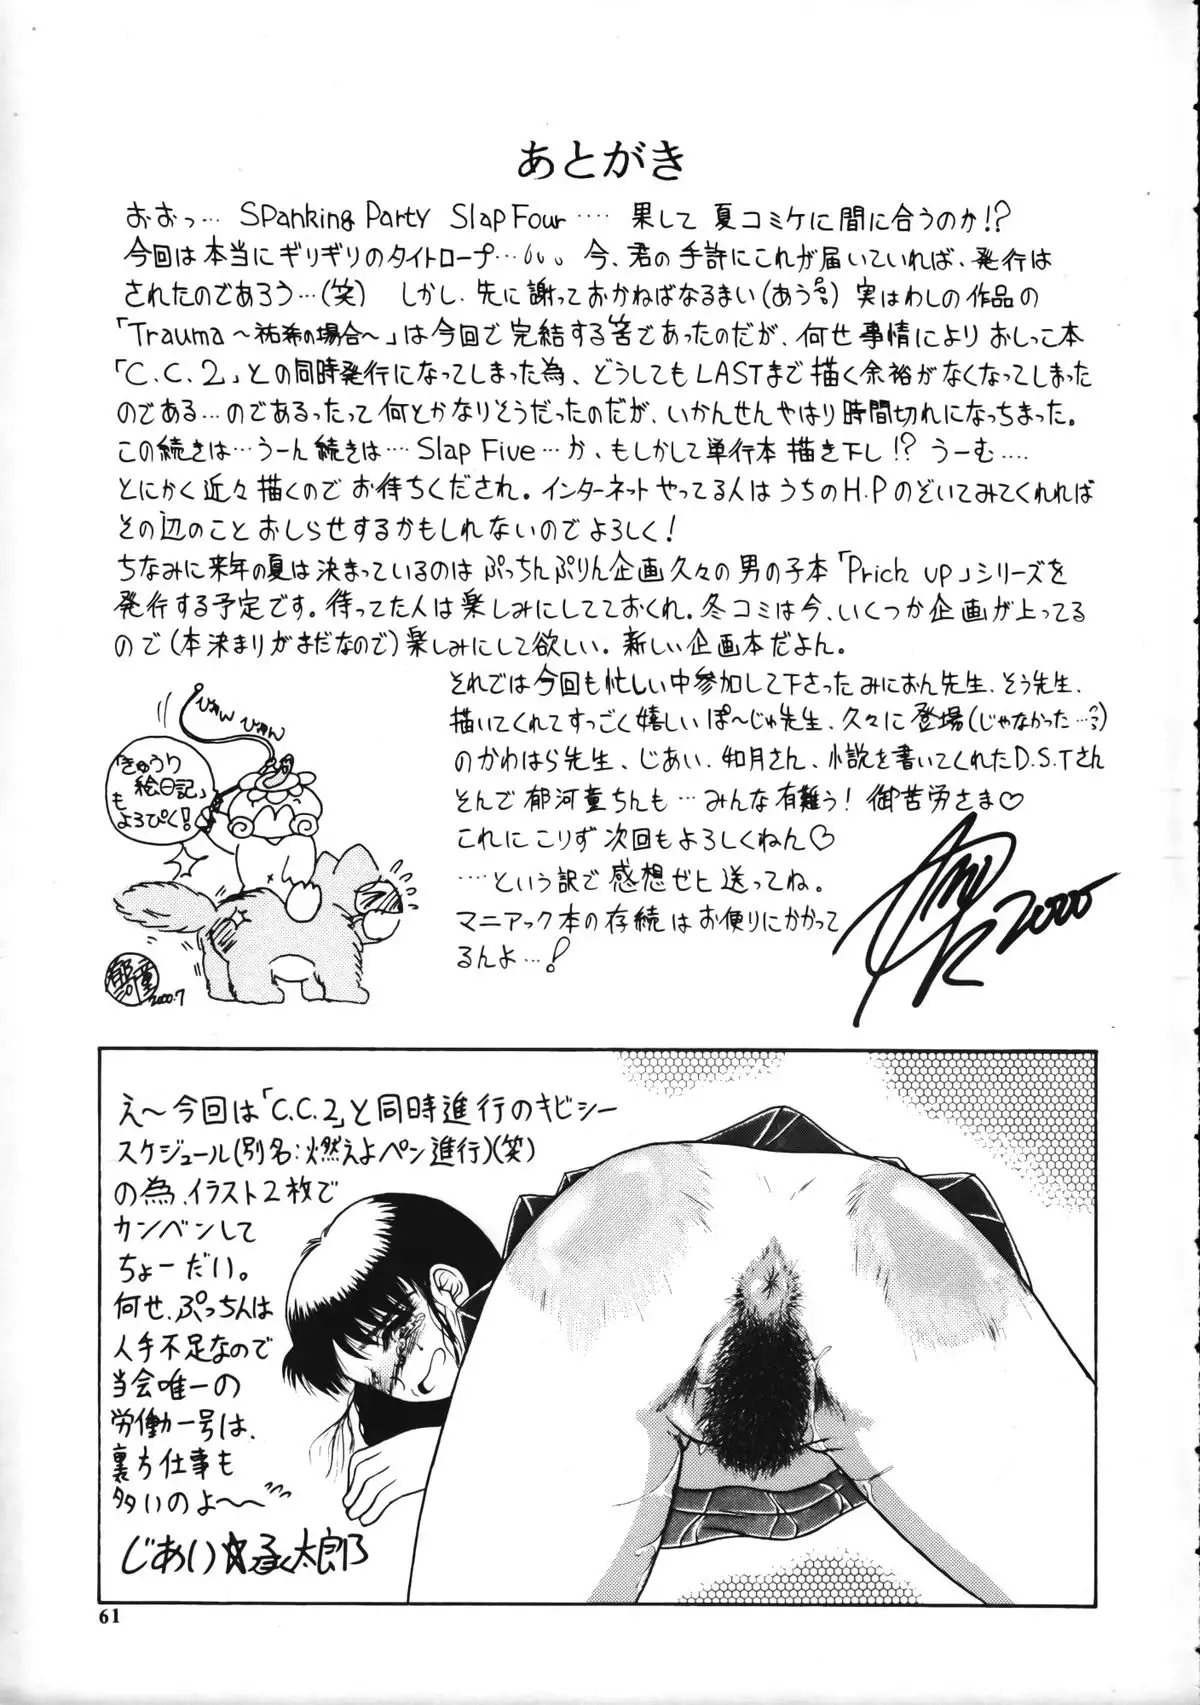 あとがき
おおっ… Spanking Party Slap Four‥‥ 果して 夏コミケに間に合うのか!?
今回は本当にギリギリのタイトロープ… 今、君の手許にこれが届いていれば、発行は
されたのであろう…(笑) しかし、先に謝っておかねばなるまい(あう) 実はわしの作品の
「Trauma〜祐希の場合〜」は今回で完結する筈であったのだが、何せ事情によりおしっこ本
「C.C.2」との同時発行になってしまった為、どうしてもLASTまで描く余裕がなくなってしまった
のである…のであるったって何とかなりそうだったのだが、いかんせんやはり時間切れになっちまった。
この続きは…うーん続きは‥‥Slap Five…か、もしかして単行本描き下し!? うーむ‥‥
とにかく近々描くのでお待ちくだされ。インターネットやってる人はうちのH.Pのぞいてみてくれれば
その辺のことおしらせするかもしれないのでよろしく!
ちなみに来年の夏は決まっているのはぷっちんぷりん企画久々の男の子本「Prich up」シリーズを
発行する予定です。待ってた人は楽しみにしてておくれ。冬コミは今、いくつか企画が上ってる
ので(本決まりがまだなので)楽しみにして欲しい。新しい企画本だよん。
それでは今回も忙しい中参加して下さったみにおん先生、そう先生、
描いてくれてすっごく嬉しいぽ〜じゅ先生、久々に登場(じゃなかった…)
のかわはら先生、じあい、如月さん、小説を書いてくれたD.S.Tさん
そんで郁河童ちんも…みんな有難う!御苦労さま♡
これにこりず次回もよろしくねん♡
‥‥という訳で感想ゼヒ送ってね。
マニアック本の存続はお便りにかかって
るんよ…!
2000
ぴよん ぴよん
「きゅうり
絵日記」
も
よろぴく!
郁河童
2000.7
え〜今回は「C.C.2」と同時進行のキビシー
スケジュール(別名:燃えよペン進行)(笑)
の為、イラスト2枚で
カンベンして
ちょーだい。
何せ、ぷっちんは
人手不足なので
当会唯一の
労働一号は、
裏方仕事も
多いのよ〜〜
じあい☆承太郎
61